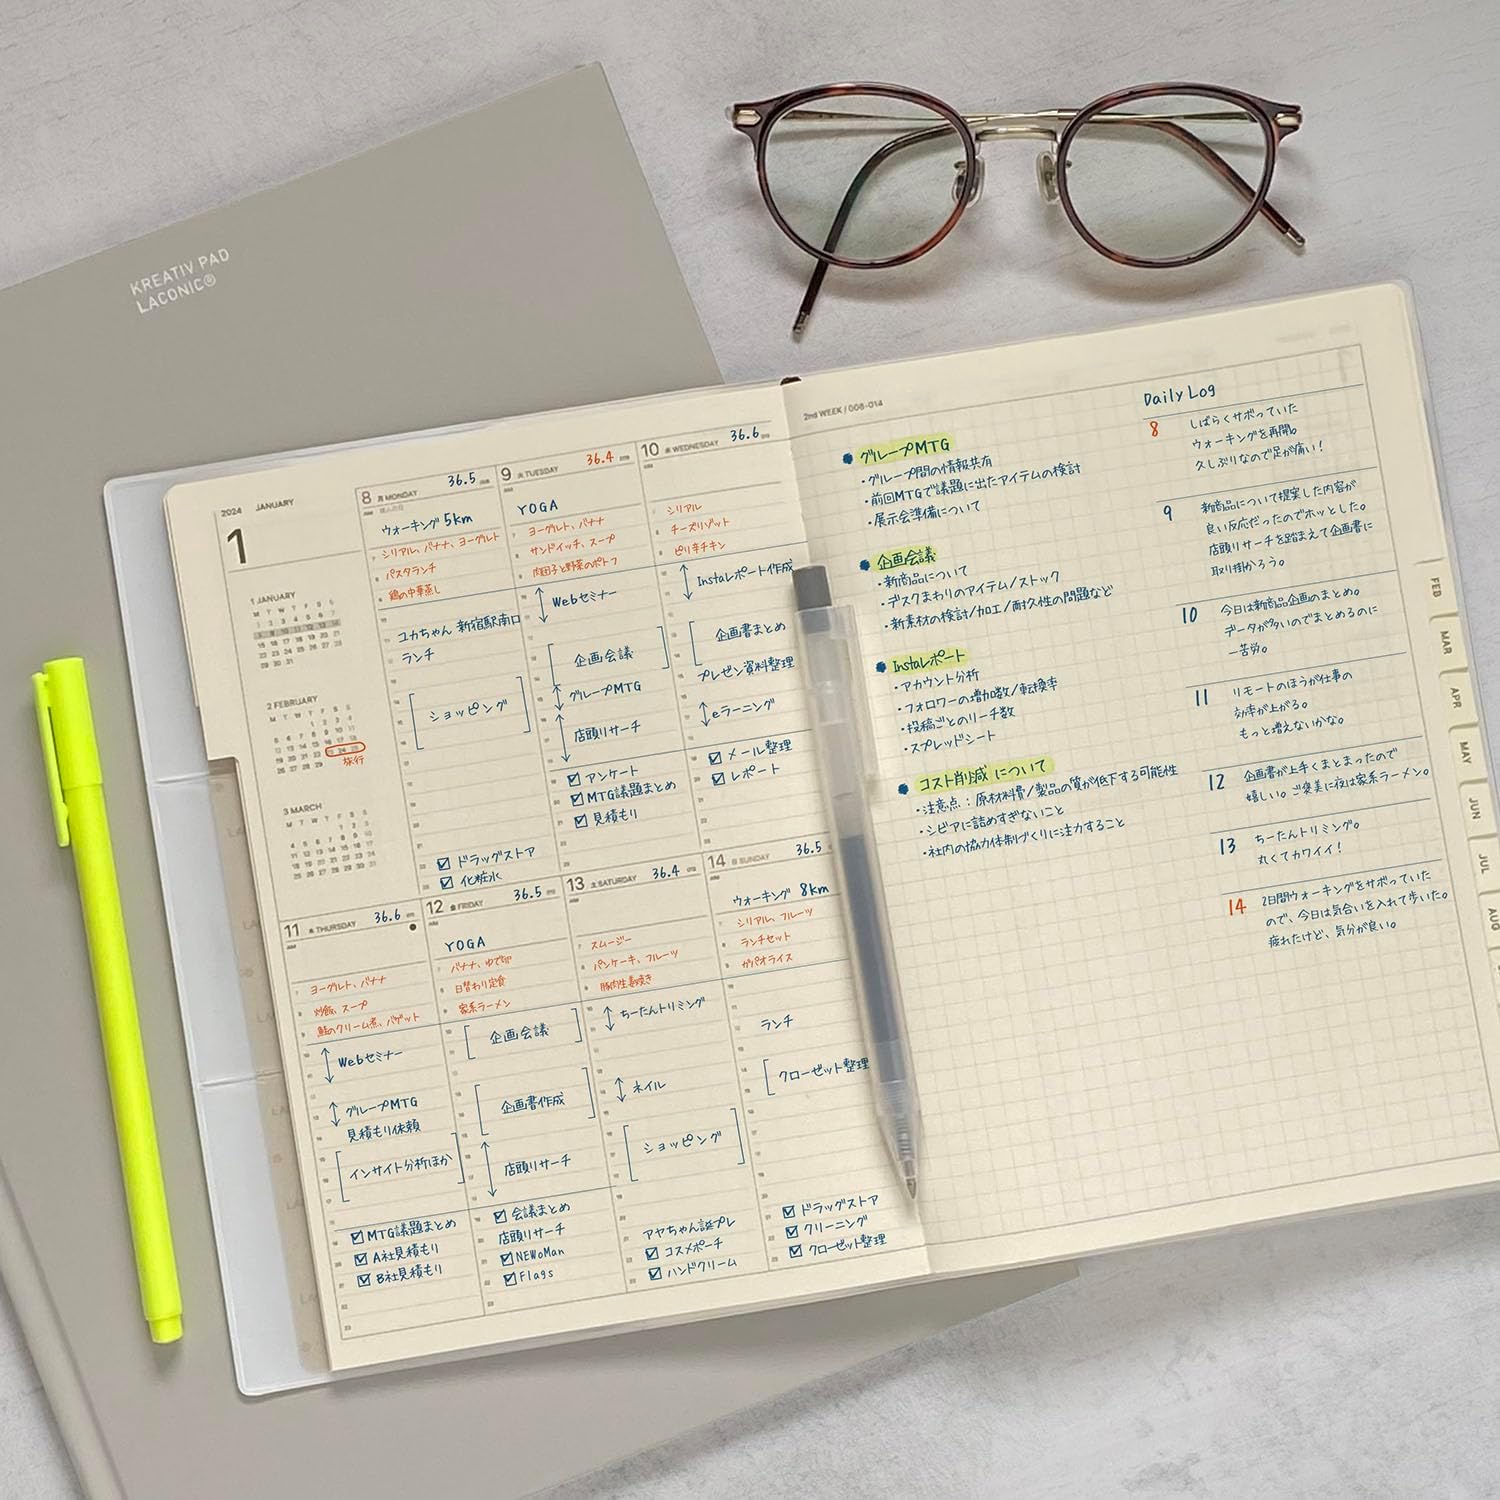 KREATIV PAD
LACONIC®
2024 JANUARY
1
1 JANUARY
M T W T F S S
1 2 3 4 5 6 7
8 9 10 11 12 13 14
15 16 17 18 19 20 21
22 23 24 25 26 27 28
29 30 31
2 FEBRUARY
M T W T F S S
1 2 3 4
5 6 7 8 9 10 11
12 13 14 15 16 17 18
19 20 21 22 23 24 25
26 27 28 29
旅行
3 MARCH
M T W T F S S
1 2 3
4 5 6 7 8 9 10
11 12 13 14 15 16 17
18 19 20 21 22 23 24
25 26 27 28 29 30 31
8 月 MONDAY 36.5
成人の日
ウォーキング 5km
シリアル、バナナ、ヨーグルト
パスタランチ
鶏の中華蒸し
ユカちゃん 新宿駅南口
ランチ
ショッピング
☑ ドラッグストア
☑ 化粧水
9 火 TUESDAY 36.4
YOGA
ヨーグルト、バナナ
サンドイッチ、スープ
肉団子と野菜のポトフ
Webセミナー
企画会議
グループMTG
店頭リサーチ
☑ アンケート
☑ MTG議題まとめ
☑ 見積もり
10 水 WEDNESDAY 36.6
シリアル
チーズリゾット
ピリ辛チキン
Instaレポート作成
企画書まとめ
プレゼン資料整理
eラーニング
☑ メール整理
☑ レポート
11 木 THURSDAY 36.6
ヨーグルト、バナナ
炒飯、スープ
鮭のクリーム煮、バゲット
Webセミナー
グループMTG
見積もり依頼
インサイト分析ほか
☑ MTG議題まとめ
☑ A社見積もり
☑ B社見積もり
12 金 FRIDAY 36.5
YOGA
バナナ、ゆで卵
日替わり定食
家系ラーメン
企画会議
企画書作成
店頭リサーチ
☑ 会議まとめ
店頭リサーチ
☑ NEWoMan
☑ Flags
13 土 SATURDAY 36.4
スムージー
パンケーキ、フルーツ
豚肉生姜焼き
ちーたんトリミング
ネイル
ショッピング
アヤちゃん誕プレ
☑ コスメポーチ
☑ ハンドクリーム
14 日 SUNDAY 36.5
ウォーキング 8km
シリアル、フルーツ
ランチセット
ガパオライス
ランチ
クローゼット整理
☑ ドラッグストア
☑ クリーニング
☑ クローゼット整理
2nd WEEK / 008-014
グループMTG
・グループ間の情報共有
・前回MTGで議題に出たアイテムの検討
・展示会準備について
企画会議
・新商品について
・デスクまわりのアイテム/ストック
・新素材の検討/加工/耐久性の問題など
Instaレポート
・アカウント分析
・フォロワーの増加数/転換率
・投稿ごとのリーチ数
・スプレッドシート
コスト削減について
・注意点：原材料費/製品の質が低下する可能性
・シビアに詰めすぎないこと
・社内の協力体制づくりに注力すること
Daily Log
8 しばらくサボっていた
ウォーキングを再開。
久しぶりなので足が痛い！
9 新商品について提案した内容が
良い反応だったのでホッとした。
店頭リサーチを踏まえて企画書に
取り掛かろう。
10 今日は新商品企画のまとめ。
データが多いのでまとめるのに
一苦労。
11 リモートのほうが仕事の
効率が上がる。
もっと増えないかな。
12 企画書が上手くまとまったので
嬉しい。ご褒美に夜は家系ラーメン。
13 ちーたんトリミング。
丸くてカワイイ！
14 2日間ウォーキングをサボっていた
ので、今日は気合いを入れて歩いた。
疲れたけど、気分が良い。
FEB
MAR
APR
MAY
JUN
JUL
AUG